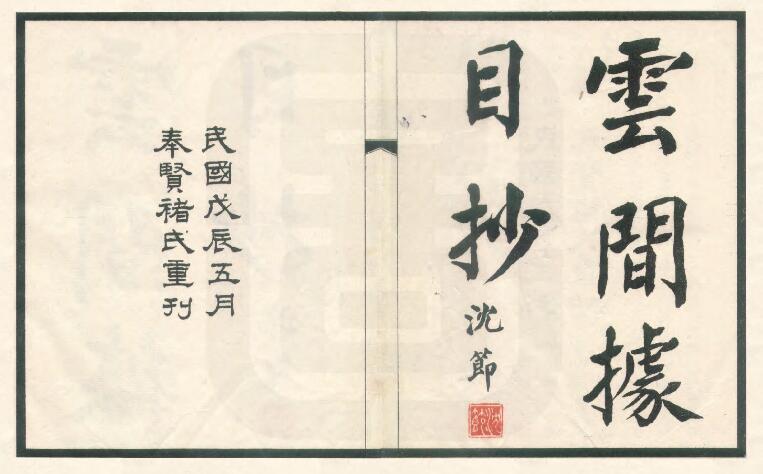 雲間據
目抄
沈節
民國戊辰五月
奉賢褚氏重刊